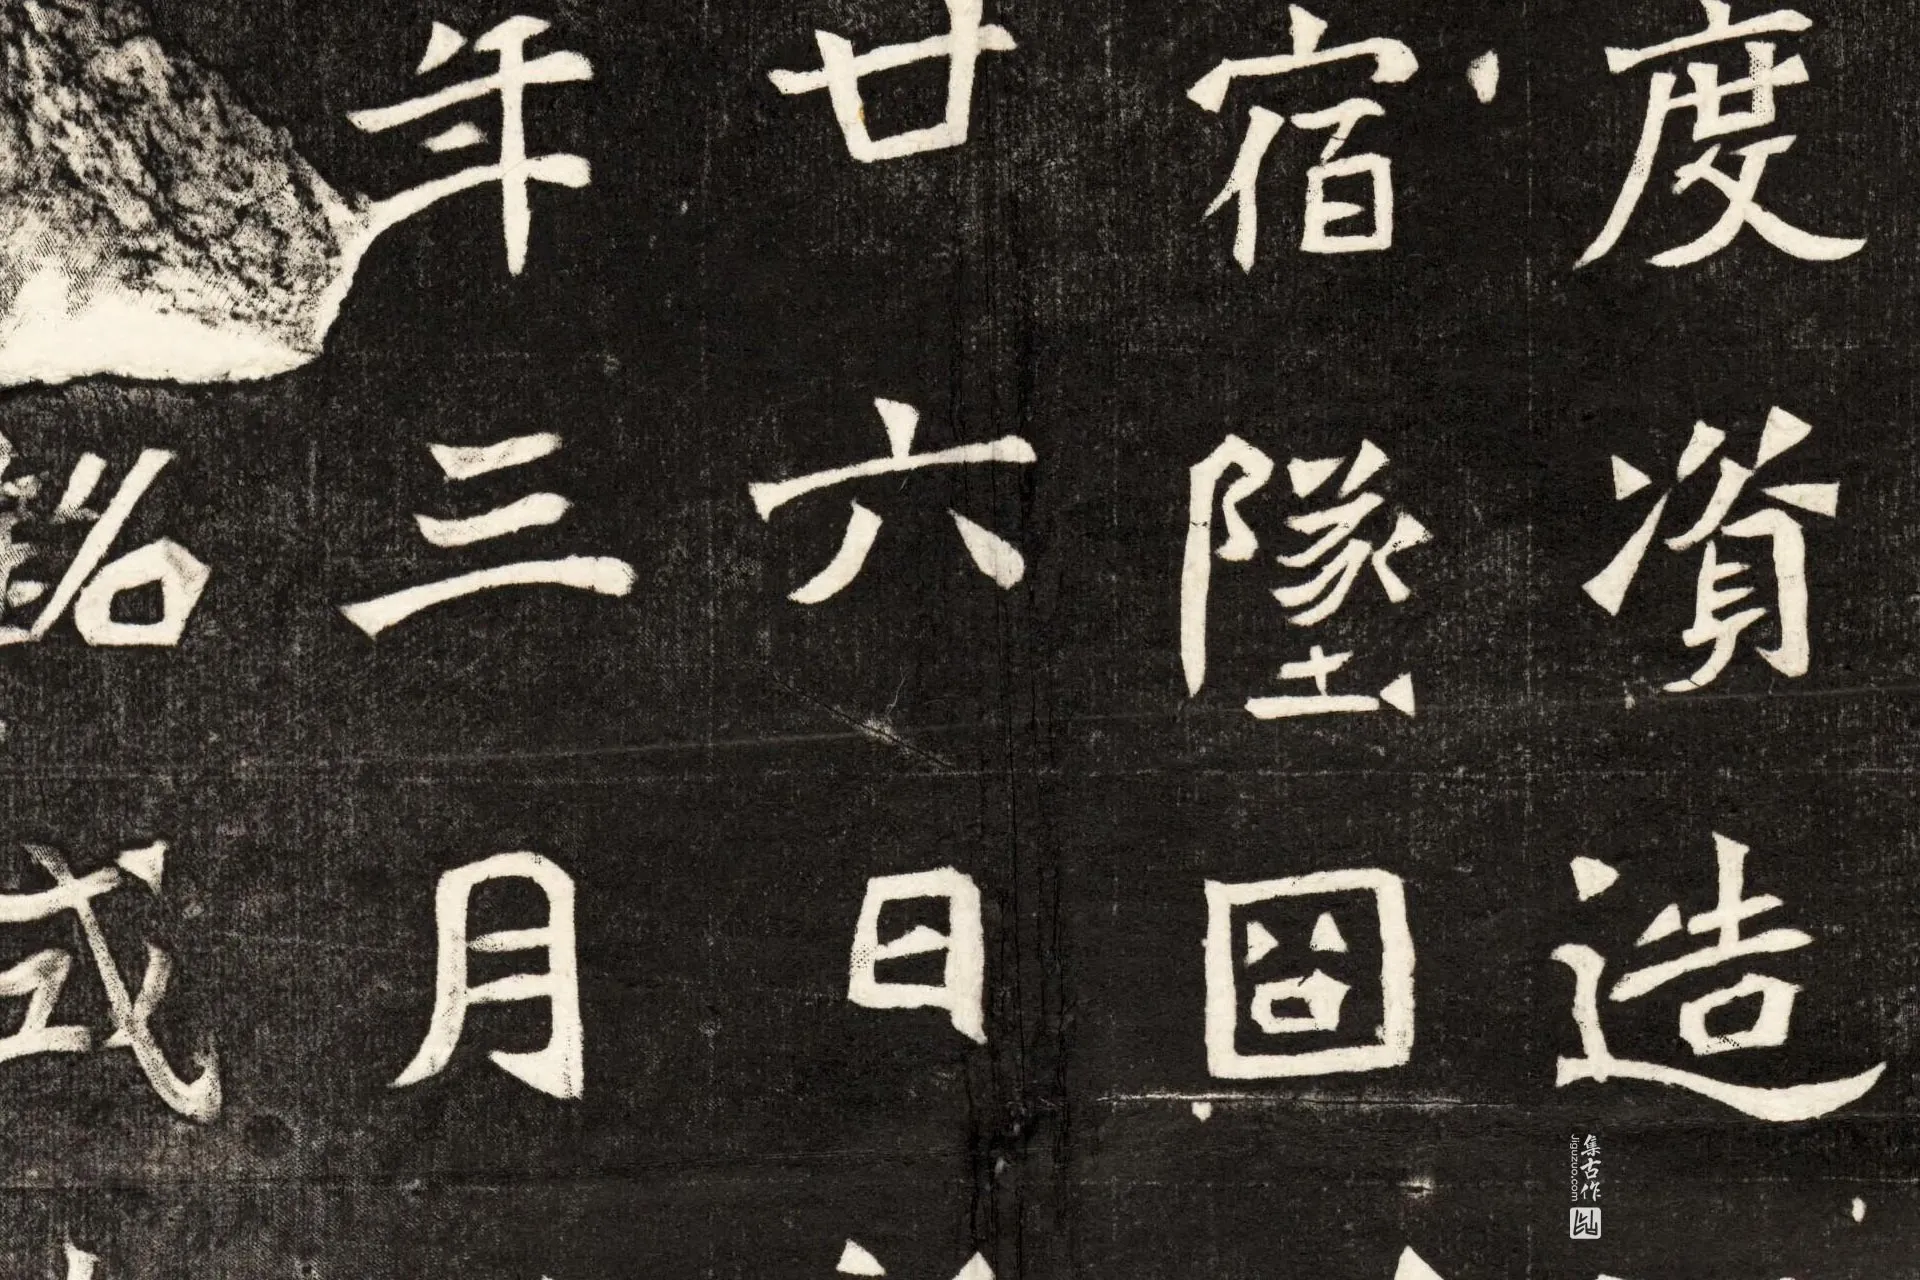 度資造
宿墜囧
廿六日
年三月
或
集古作
Jiguzuo.com